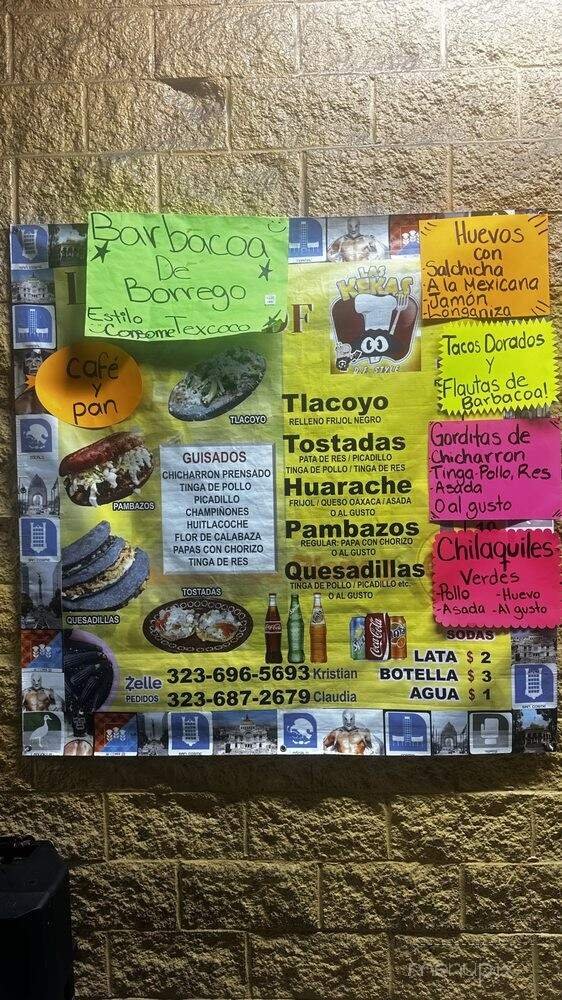 Barbacoa
De
Borrego
Estilo Texcoco
Consome
Café
y
pan
LAS
KEKAS
D.F. STYLE
DF
Huevos
con
Salchicha
A la Mexicana
Jamón
Longaniza
Tacos Dorados
y
Flautas de
Barbacoa!
Gorditas de
Chicharron
Tinga-Pollo, Res
-Asada
O al gusto
Chilaquiles
Verdes
-Pollo -Huevo
-Asada -Al gusto
TLACOYO
PAMBAZOS
QUESADILLAS
TOSTADAS
GUISADOS
CHICHARRON PRENSADO
TINGA DE POLLO
PICADILLO
CHAMPIÑONES
HUITLACOCHE
FLOR DE CALABAZA
PAPAS CON CHORIZO
TINGA DE RES
Tlacoyo
RELLENO FRIJOL NEGRO
Tostadas
PATA DE RES / PICADILLO
TINGA DE POLLO / TINGA DE RES
Huarache
FRIJOL / QUESO OAXACA / ASADA
O AL GUSTO
Pambazos
REGULAR: PAPA CON CHORIZO
O AL GUSTO
Quesadillas
TINGA DE POLLO / PICADILLO etc.
O AL GUSTO
SODAS
LATA $ 2
BOTELLA $ 3
AGUA $ 1
Coca-Cola
Zelle
PEDIDOS
323-696-5693 Kristian
323-687-2679 Claudia
SAN COSME
menupix